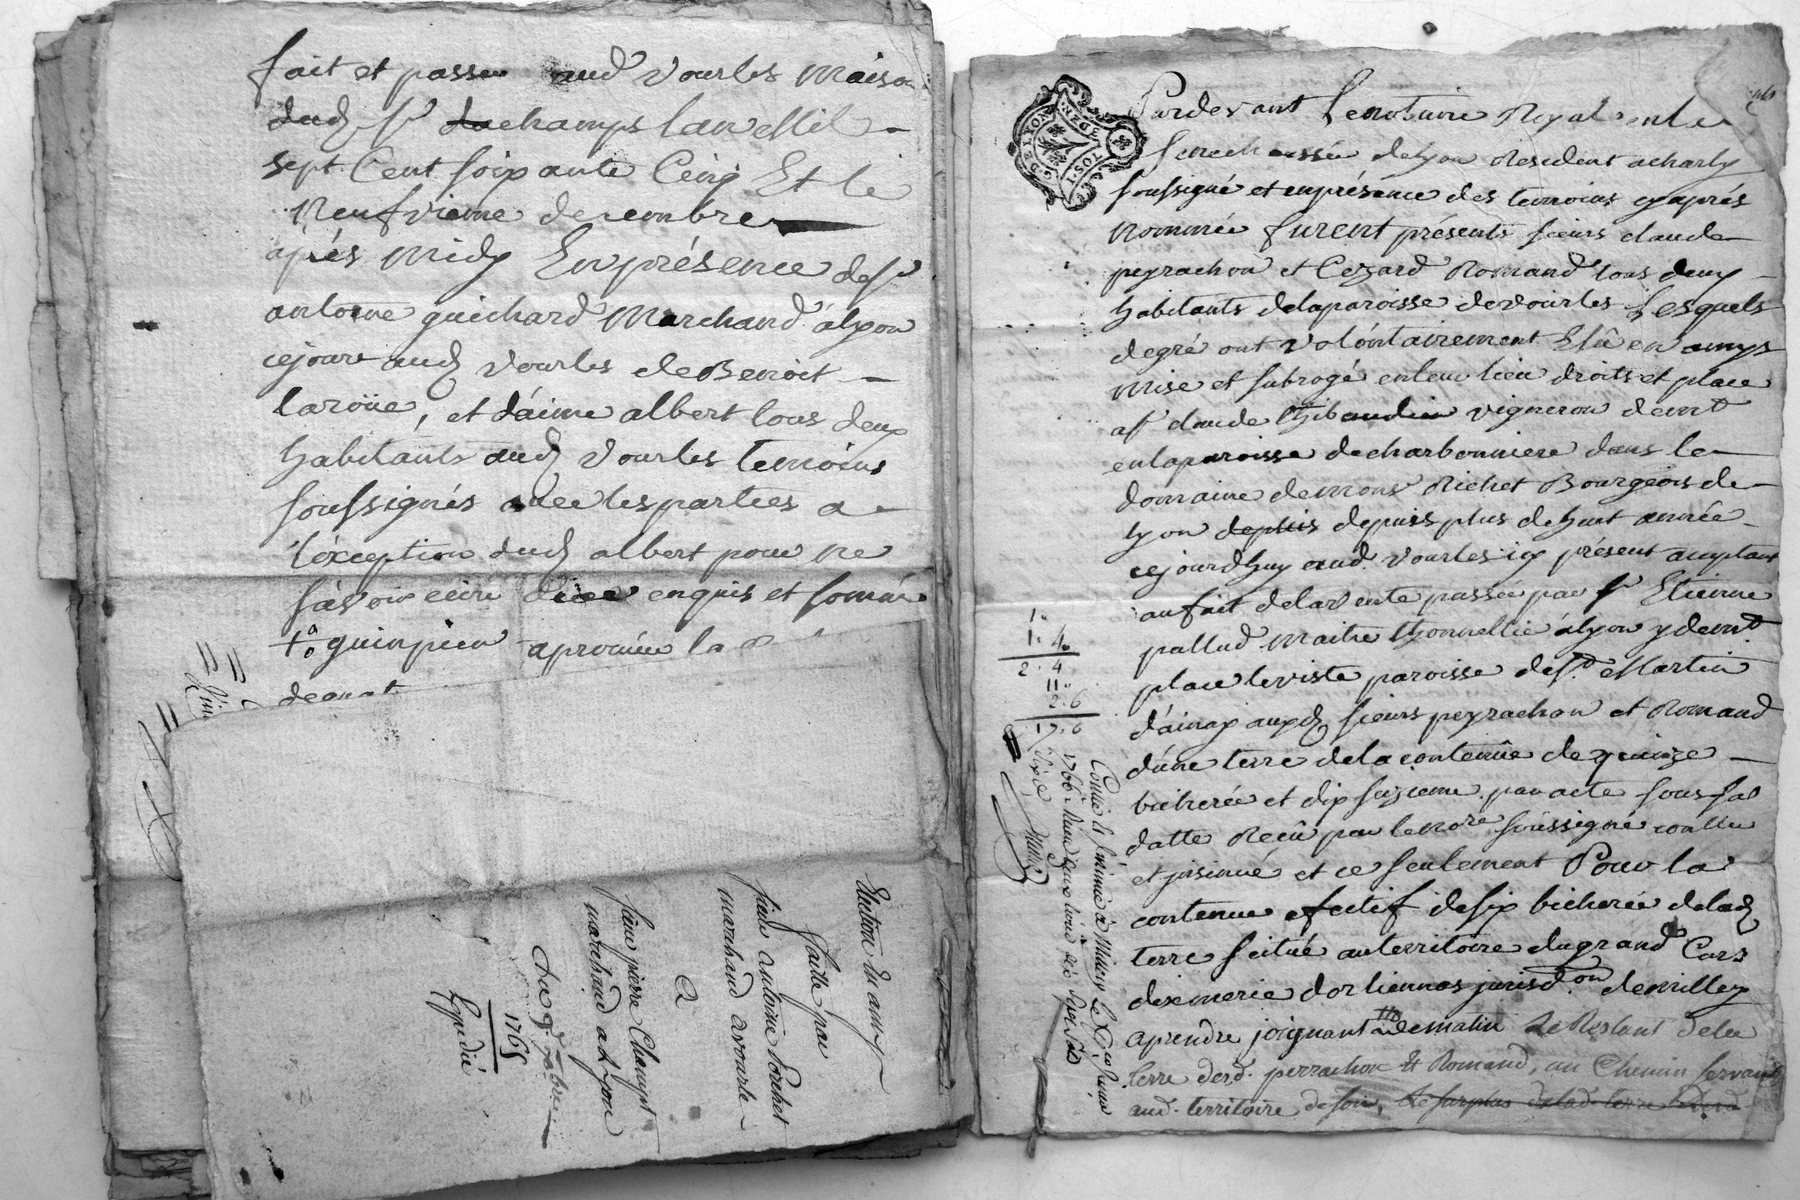 fait et passé aud Vourles maison
dudt sr duchamps lan Mil
sept Cent soixante Cinq Et le
Neufvieme decembre
après midy En présence de sr
antoine guichard Marchand à lyon
cejour audt Vourles de Benoit
laroüe, et d'aime albert tous deux
habitants audt Vourles temoins
soussignés avec les parties a
l'éxception dudt albert pour ne
sàvoir ecire enquis et sommé
quinpieu aprouvée la
Election en amy
faitte par
sieur antoine Porchet
marchand a vourle
a
sieur pierre Champt
marchand a Lyon
Du 9. Xbre
1765
Expedié
Pardevant Le notaire Royal en la
senechaussée de Lyon Resident a charly
soussigné et en présence des temoins cy après
Nommée furent présents sieurs claude
peyrachon et Cezard Romand tous deux
habitants de la paroisse de vourles Lesquels
de gré ont volóntairement Elû en amys
mise et subrogé en leur lieu droits et place
a sr claude thibaudin vigneron demt
en la paroisse de charbonniere dans le
domaine de monsr Richet Bourgeois de
lyon depuis depuis plus de huit année
cejourdhuy aud. Vourles icy présent acceptant
au fait de la vente passée par sr Etienne
pallud maitre thonnellié à lyon y demt
place leviste paroisse de St. Martin
d'ainay auxdt sieurs peyrachon et Romand
d'une terre de la contenüe de quinze
bicherée et dix seizieme par acte sous sa
datte Recû par le Nore soussigné controllé
et insinué et ce seulement Pour la
contenue efectif de six bicherée de ladt
terre scitué au territoire du grand Cars
dixmerie d'orliennas jurisdon de millery
a prendre joignant de matin Le Restant de la
terre desd. perrachon & Romand, un Chemin servant
aud. territoire de soir, Le surplus de lad. terre
1.
1. 4
2. 4
11.
2. 6
17. 6
Conlé et Insinué à Millery Le Xe Janer
1766. Reçu